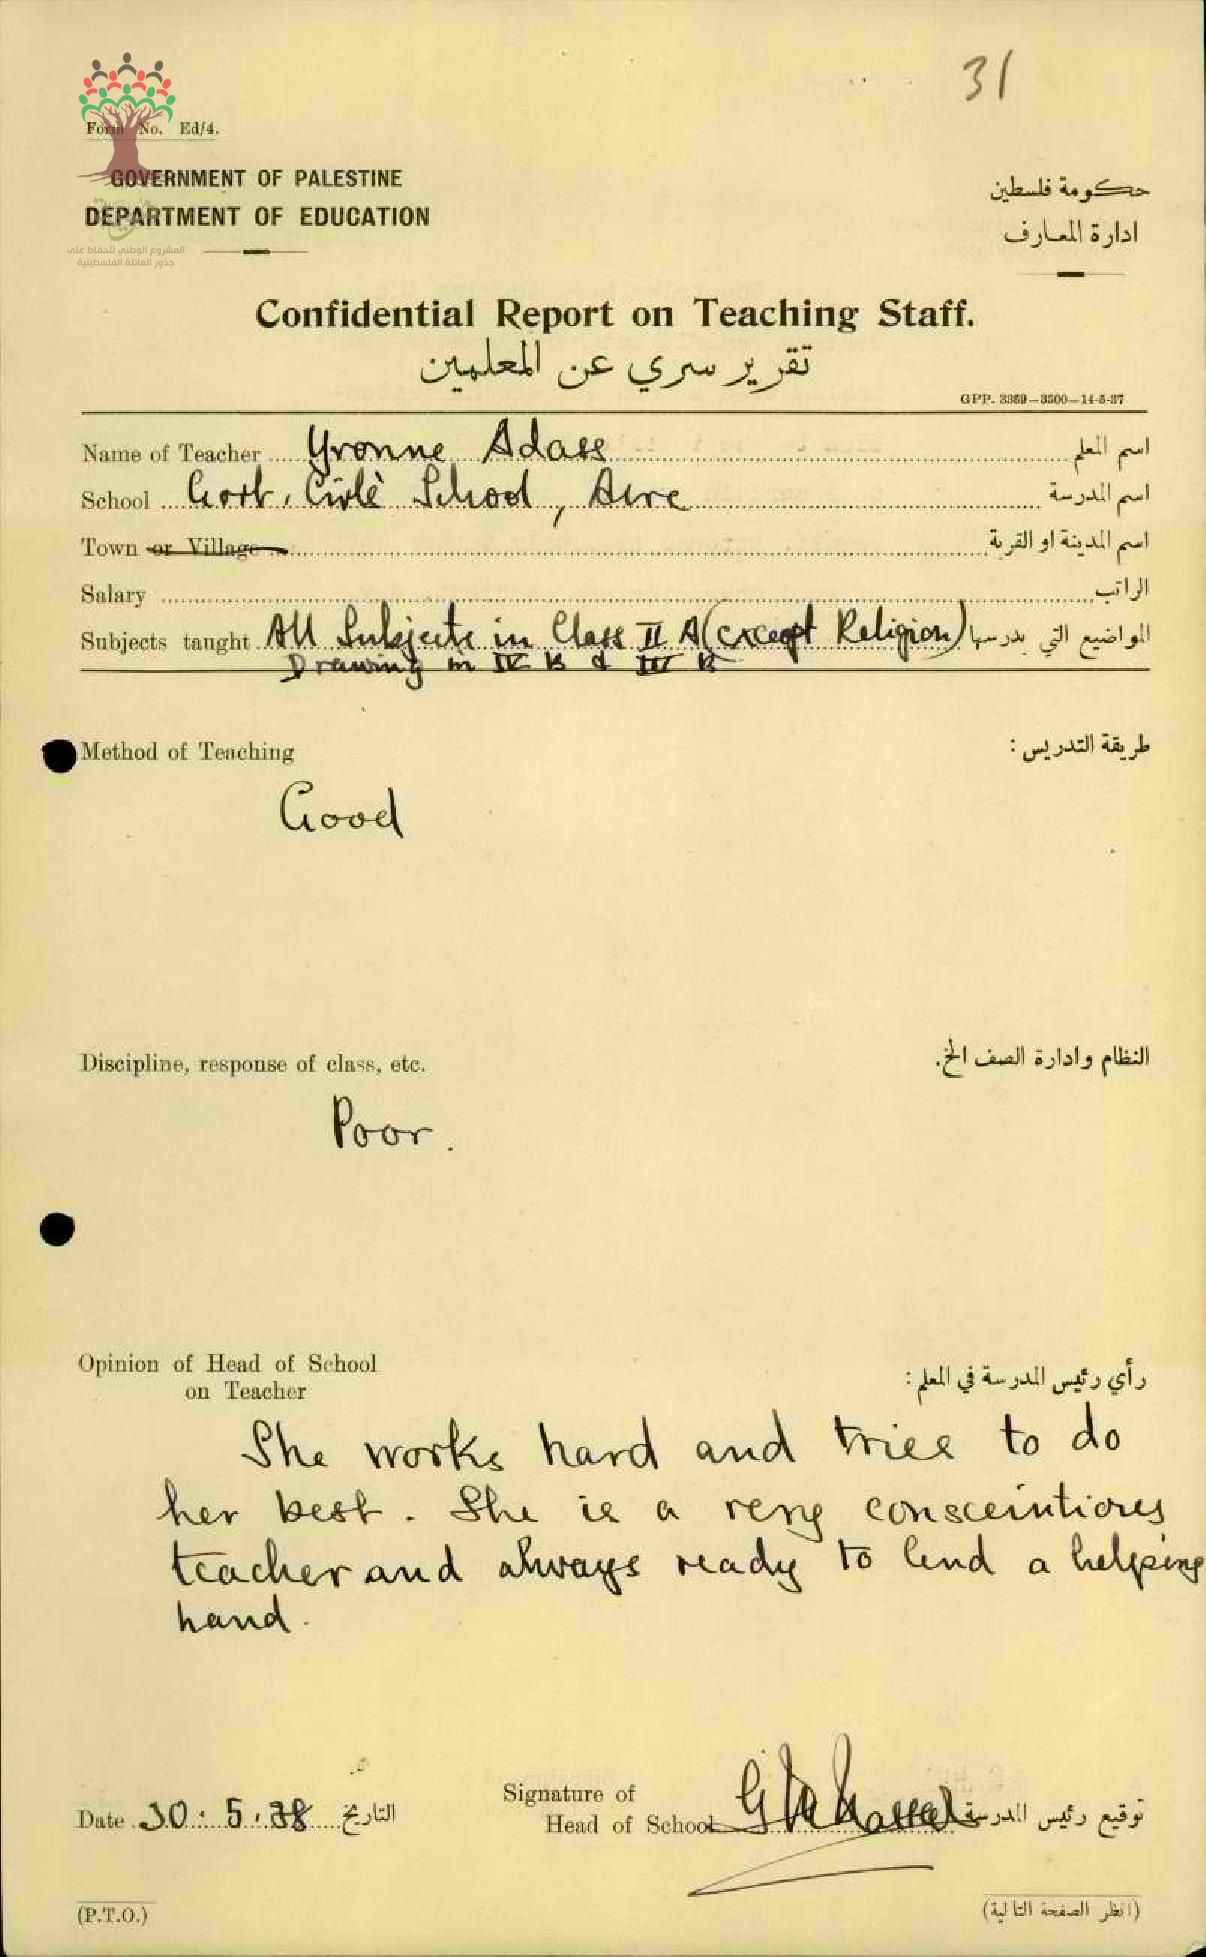 31
Form No. Ed/4.
GOVERNMENT OF PALESTINE
DEPARTMENT OF EDUCATION
حكومة فلسطين
ادارة المعارف
المشروع الوطني للحفاظ على
جذور العائلة الفلسطينية
Confidential Report on Teaching Staff.
تقرير سري عن المعلمين
GPP. 3369—3500—14-5-37
Name of Teacher Yvonne Adass اسم المعلم
School Govt. Girls' School, Acre اسم المدرسة
Town or Village اسم المدينة او القرية
Salary الراتب
Subjects taught All Subjects in Class II A (except Religion) المواضيع التي يدرسها
Drawing in IV B & III B
Method of Teaching طريقة التدريس :
Good
Discipline, response of class, etc. النظام وادارة الصف الخ.
Poor.
Opinion of Head of School
on Teacher رأي رئيس المدرسة في المعلم :
She works hard and tries to do
her best. She is a very consceintious
teacher and always ready to lend a helping
hand.
Signature of
Date 30.5.38 التاريخ Head of School توقيع رئيس المدرسة
(P.T.O.) (انظر الصفحة التالية)